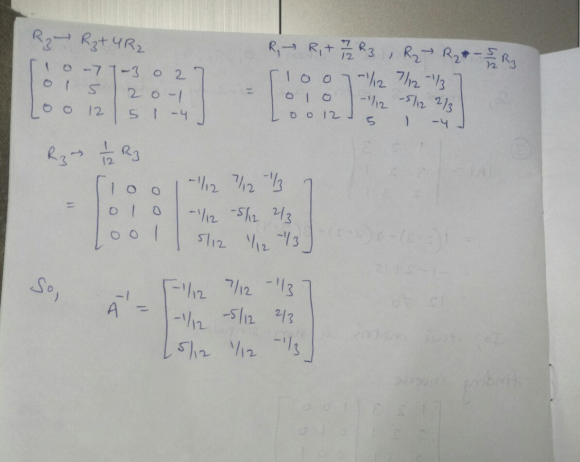 R3 → R3 + 4R2
[1 0 -7 | -3 0 2]
[0 1 5 | 2 0 -1]
[0 0 12 | 5 1 -4]
R1 → R1 + 7/12 R3 , R2 → R2 - 5/12 R3
= [1 0 0 | -1/12 7/12 -1/3]
[0 1 0 | -1/12 -5/12 2/3]
[0 0 12 | 5 1 -4]
R3 → 1/12 R3
= [1 0 0 | -1/12 7/12 -1/3]
[0 1 0 | -1/12 -5/12 2/3]
[0 0 1 | 5/12 1/12 -1/3]
So,
A^-1 = [-1/12 7/12 -1/3]
[-1/12 -5/12 2/3]
[5/12 1/12 -1/3]